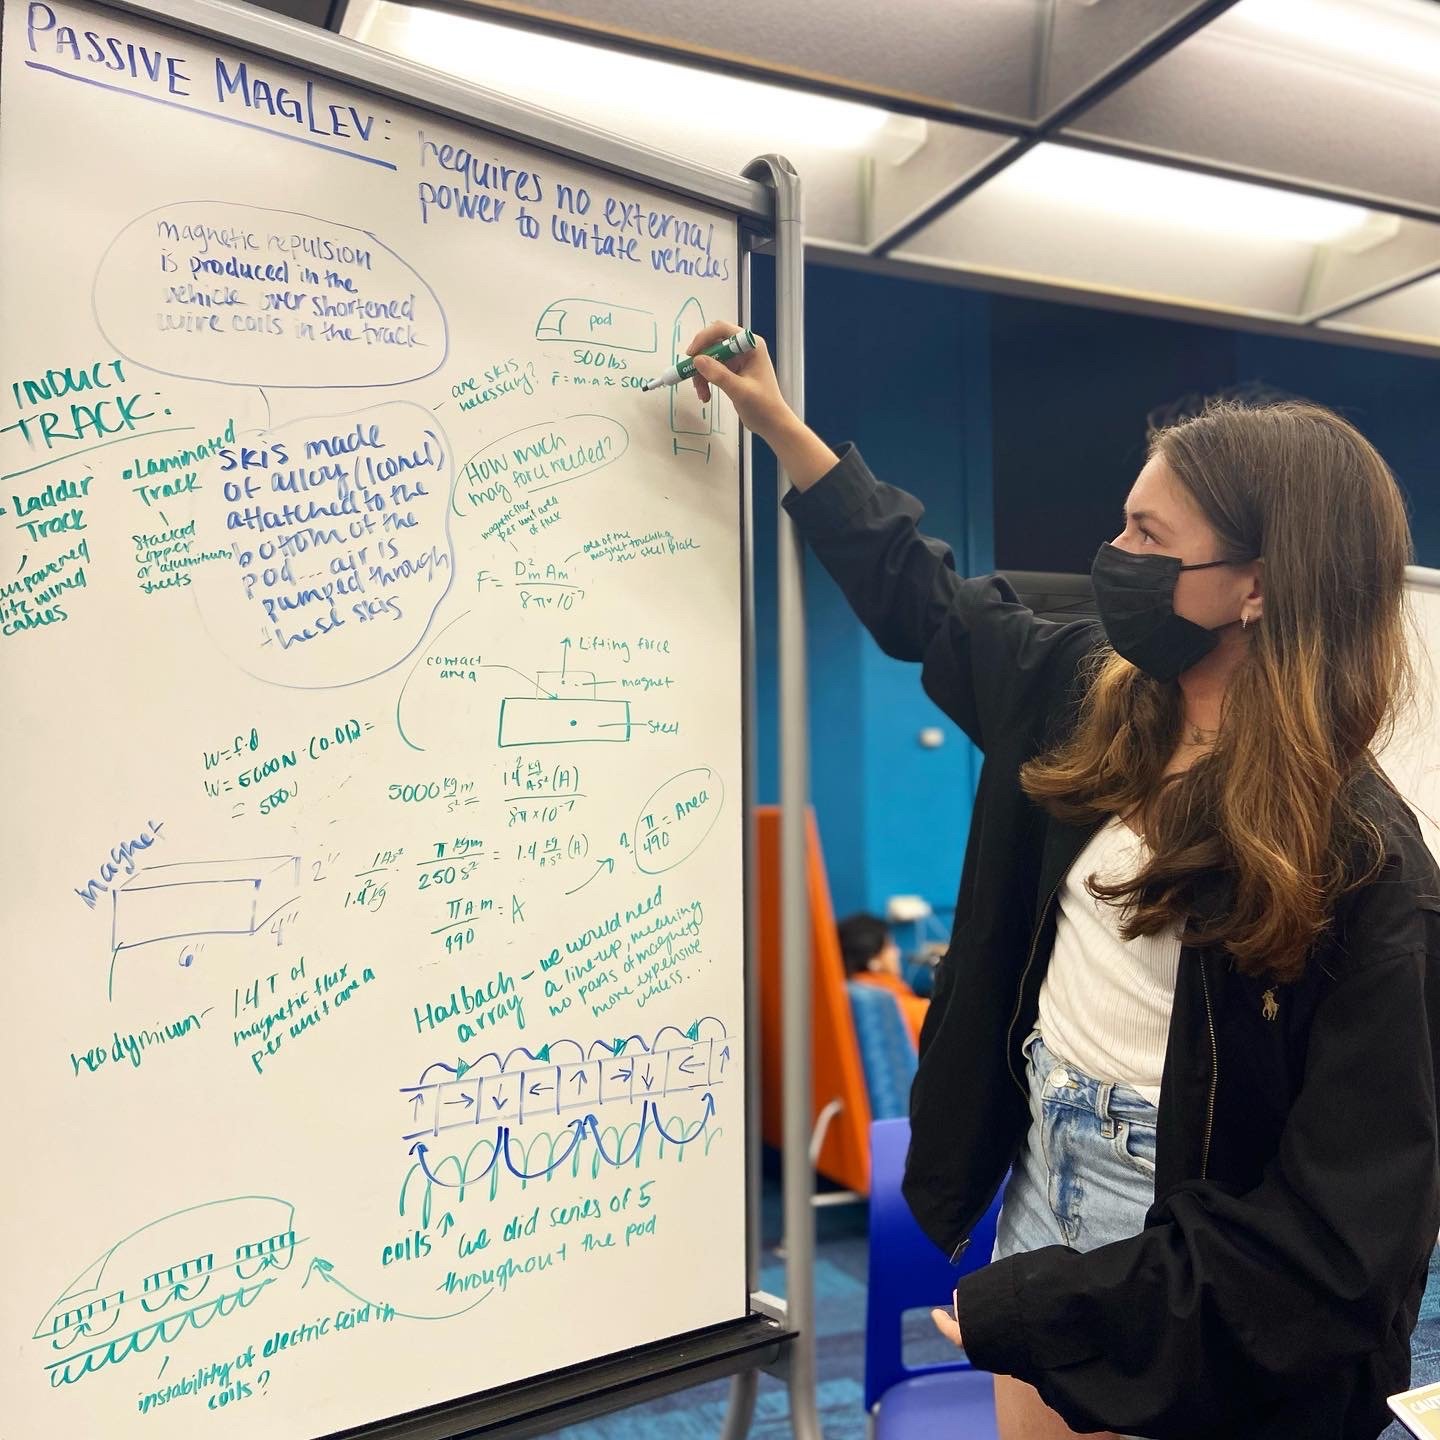 PASSIVE MAGLEV:
requires no external
power to levitate vehicles
magnetic repulsion
is produced in the
vehicle over shortened
wire coils in the track
INDUCT
TRACK:
Ladder
Track
unpowered
litz wired
cables
• Laminated
Track
Stacked
copper
or aluminum
sheets
skis made
of alloy (Iconel)
attatched to the
bottom of the
pod... air is
pumped through
these skis
are skis
necessary?
pod
500 lbs
F = m·a ≈ 500
How much
mag force needed?
magnetic flux
per unit area
of flux
area of the
magnet touching
the steel plate
F = D²m Am / 8π×10⁻⁷
Lifting force
contact
area
magnet
steel
W = f·d
W = 5000N · (0.01) =
= 50
5000 kg m/s² = 1.4² kg/A·s² (A) / 8π×10⁻⁷
1 A s²/1.4² kg · π kg m/250 s² = 1.4 kg/A·s² (A)
π A m/490 = A
π/490 = Area
magnet
2"
4"
6"
neodymium - 1.4 T of
magnetic flux
per unit area
Halbach
array
- we would need
a line-up, meaning
no pairs of magnets
more expensive
unless...
coils
we did series of 5
throughout the pod
instability of electric feild in
coils?